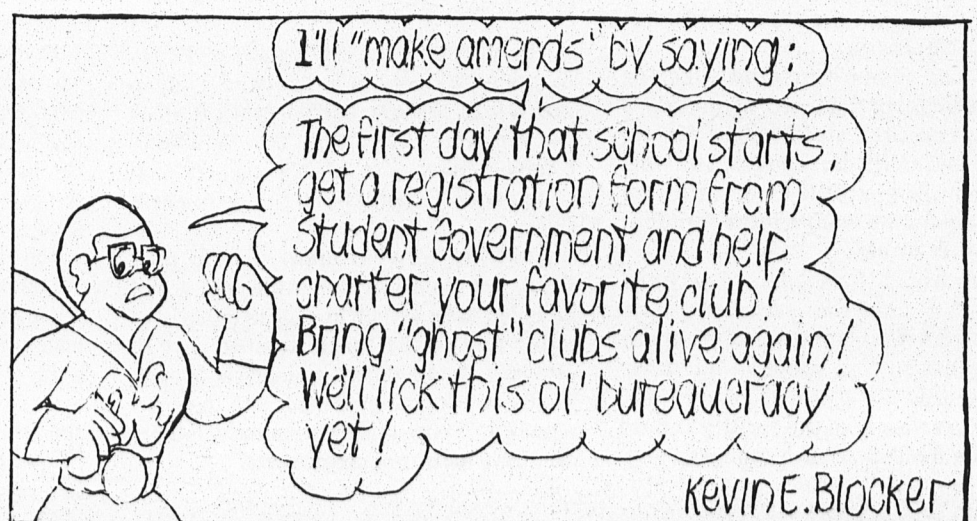 I'll "make amends' by saying:
The first day that school starts,
get a registration form from
Student Government and help
charter your favorite club!
Bring "ghost" clubs alive again!
We'll lick this ol' bureaucracy
yet!
Kevin E. Blocker